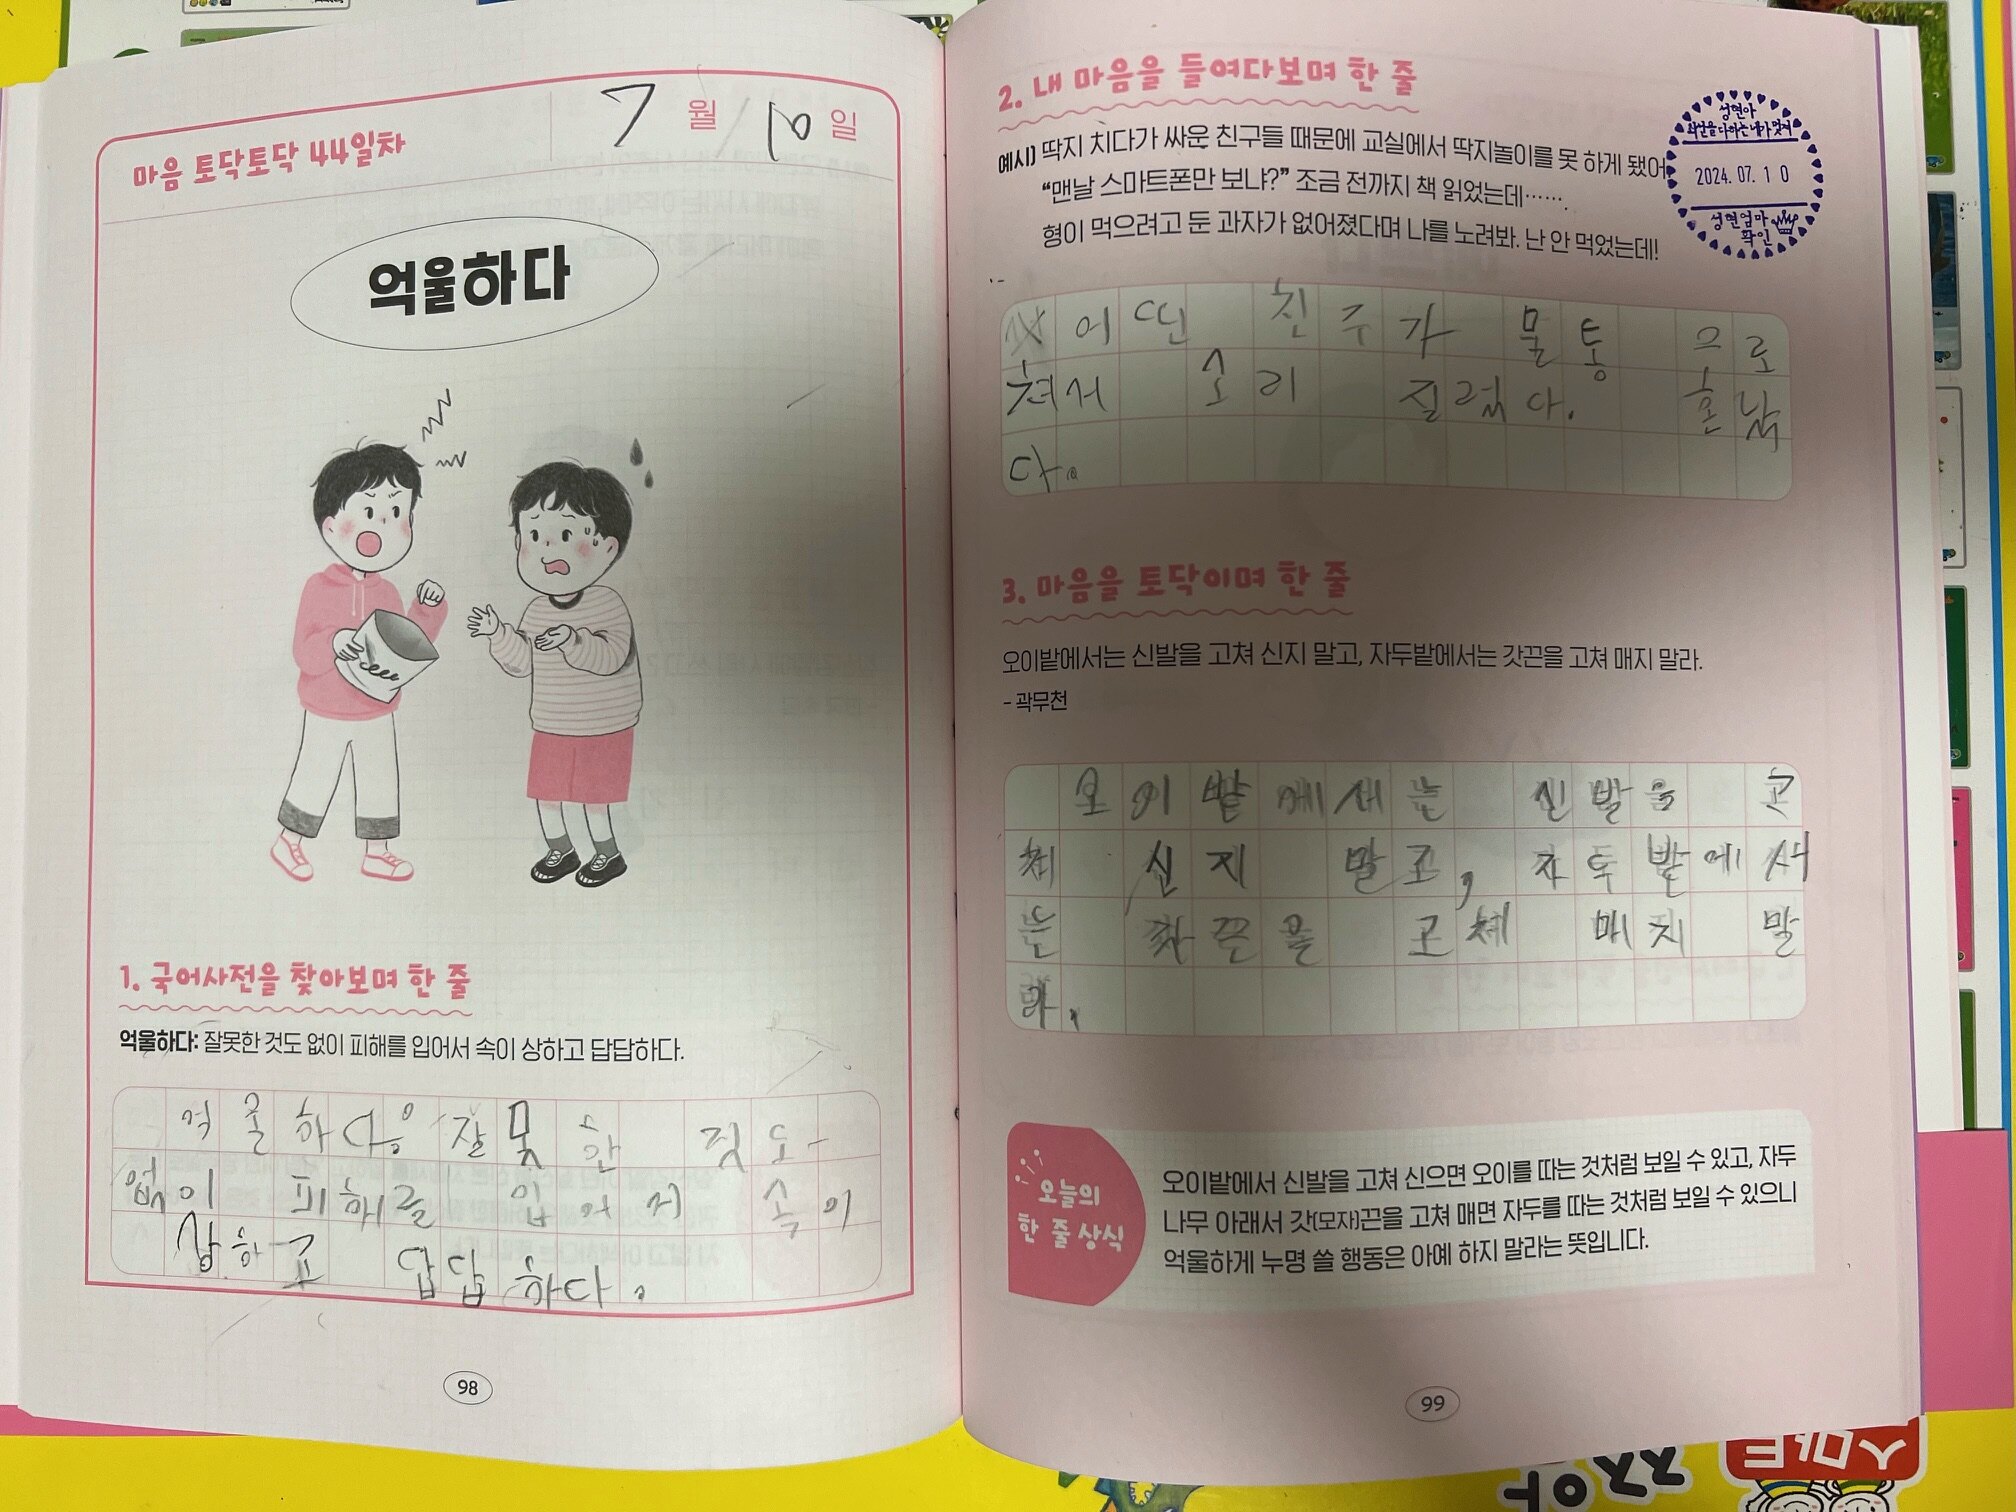 마음 토닥토닥 44일차
7월 10일
억울하다
1. 국어사전을 찾아보며 한 줄
억울하다: 잘못한 것도 없이 피해를 입어서 속이 상하고 답답하다.
억울하다. 잘못한 것도
없이 피해를 입어서 속이
상하고 답답하다.
98
2. 내 마음을 들여다보며 한 줄
예시) 딱지 치다가 싸운 친구들 때문에 교실에서 딱지놀이를 못 하게 됐어
“맨날 스마트폰만 보냐?” 조금 전까지 책 읽었는데…….
형이 먹으려고 둔 과자가 없어졌다며 나를 노려봐. 난 안 먹었는데!
성현아
2024. 07. 10
성현엄마
확인
어떤 친구가 물통으로
쳐서 소리 질렀다. 혼났
다.
3. 마음을 토닥이며 한 줄
오이밭에서는 신발을 고쳐 신지 말고, 자두밭에서는 갓끈을 고쳐 매지 말라.
- 곽무천
오이밭에서는 신발을 고
쳐 신지 말고, 자두밭에서
는 갓끈을 고쳐 매지 말
라.
오늘의
한 줄 상식
오이밭에서 신발을 고쳐 신으면 오이를 따는 것처럼 보일 수 있고, 자두
나무 아래서 갓(모자)끈을 고쳐 매면 자두를 따는 것처럼 보일 수 있으니
억울하게 누명 쓸 행동은 아예 하지 말라는 뜻입니다.
99
스마트